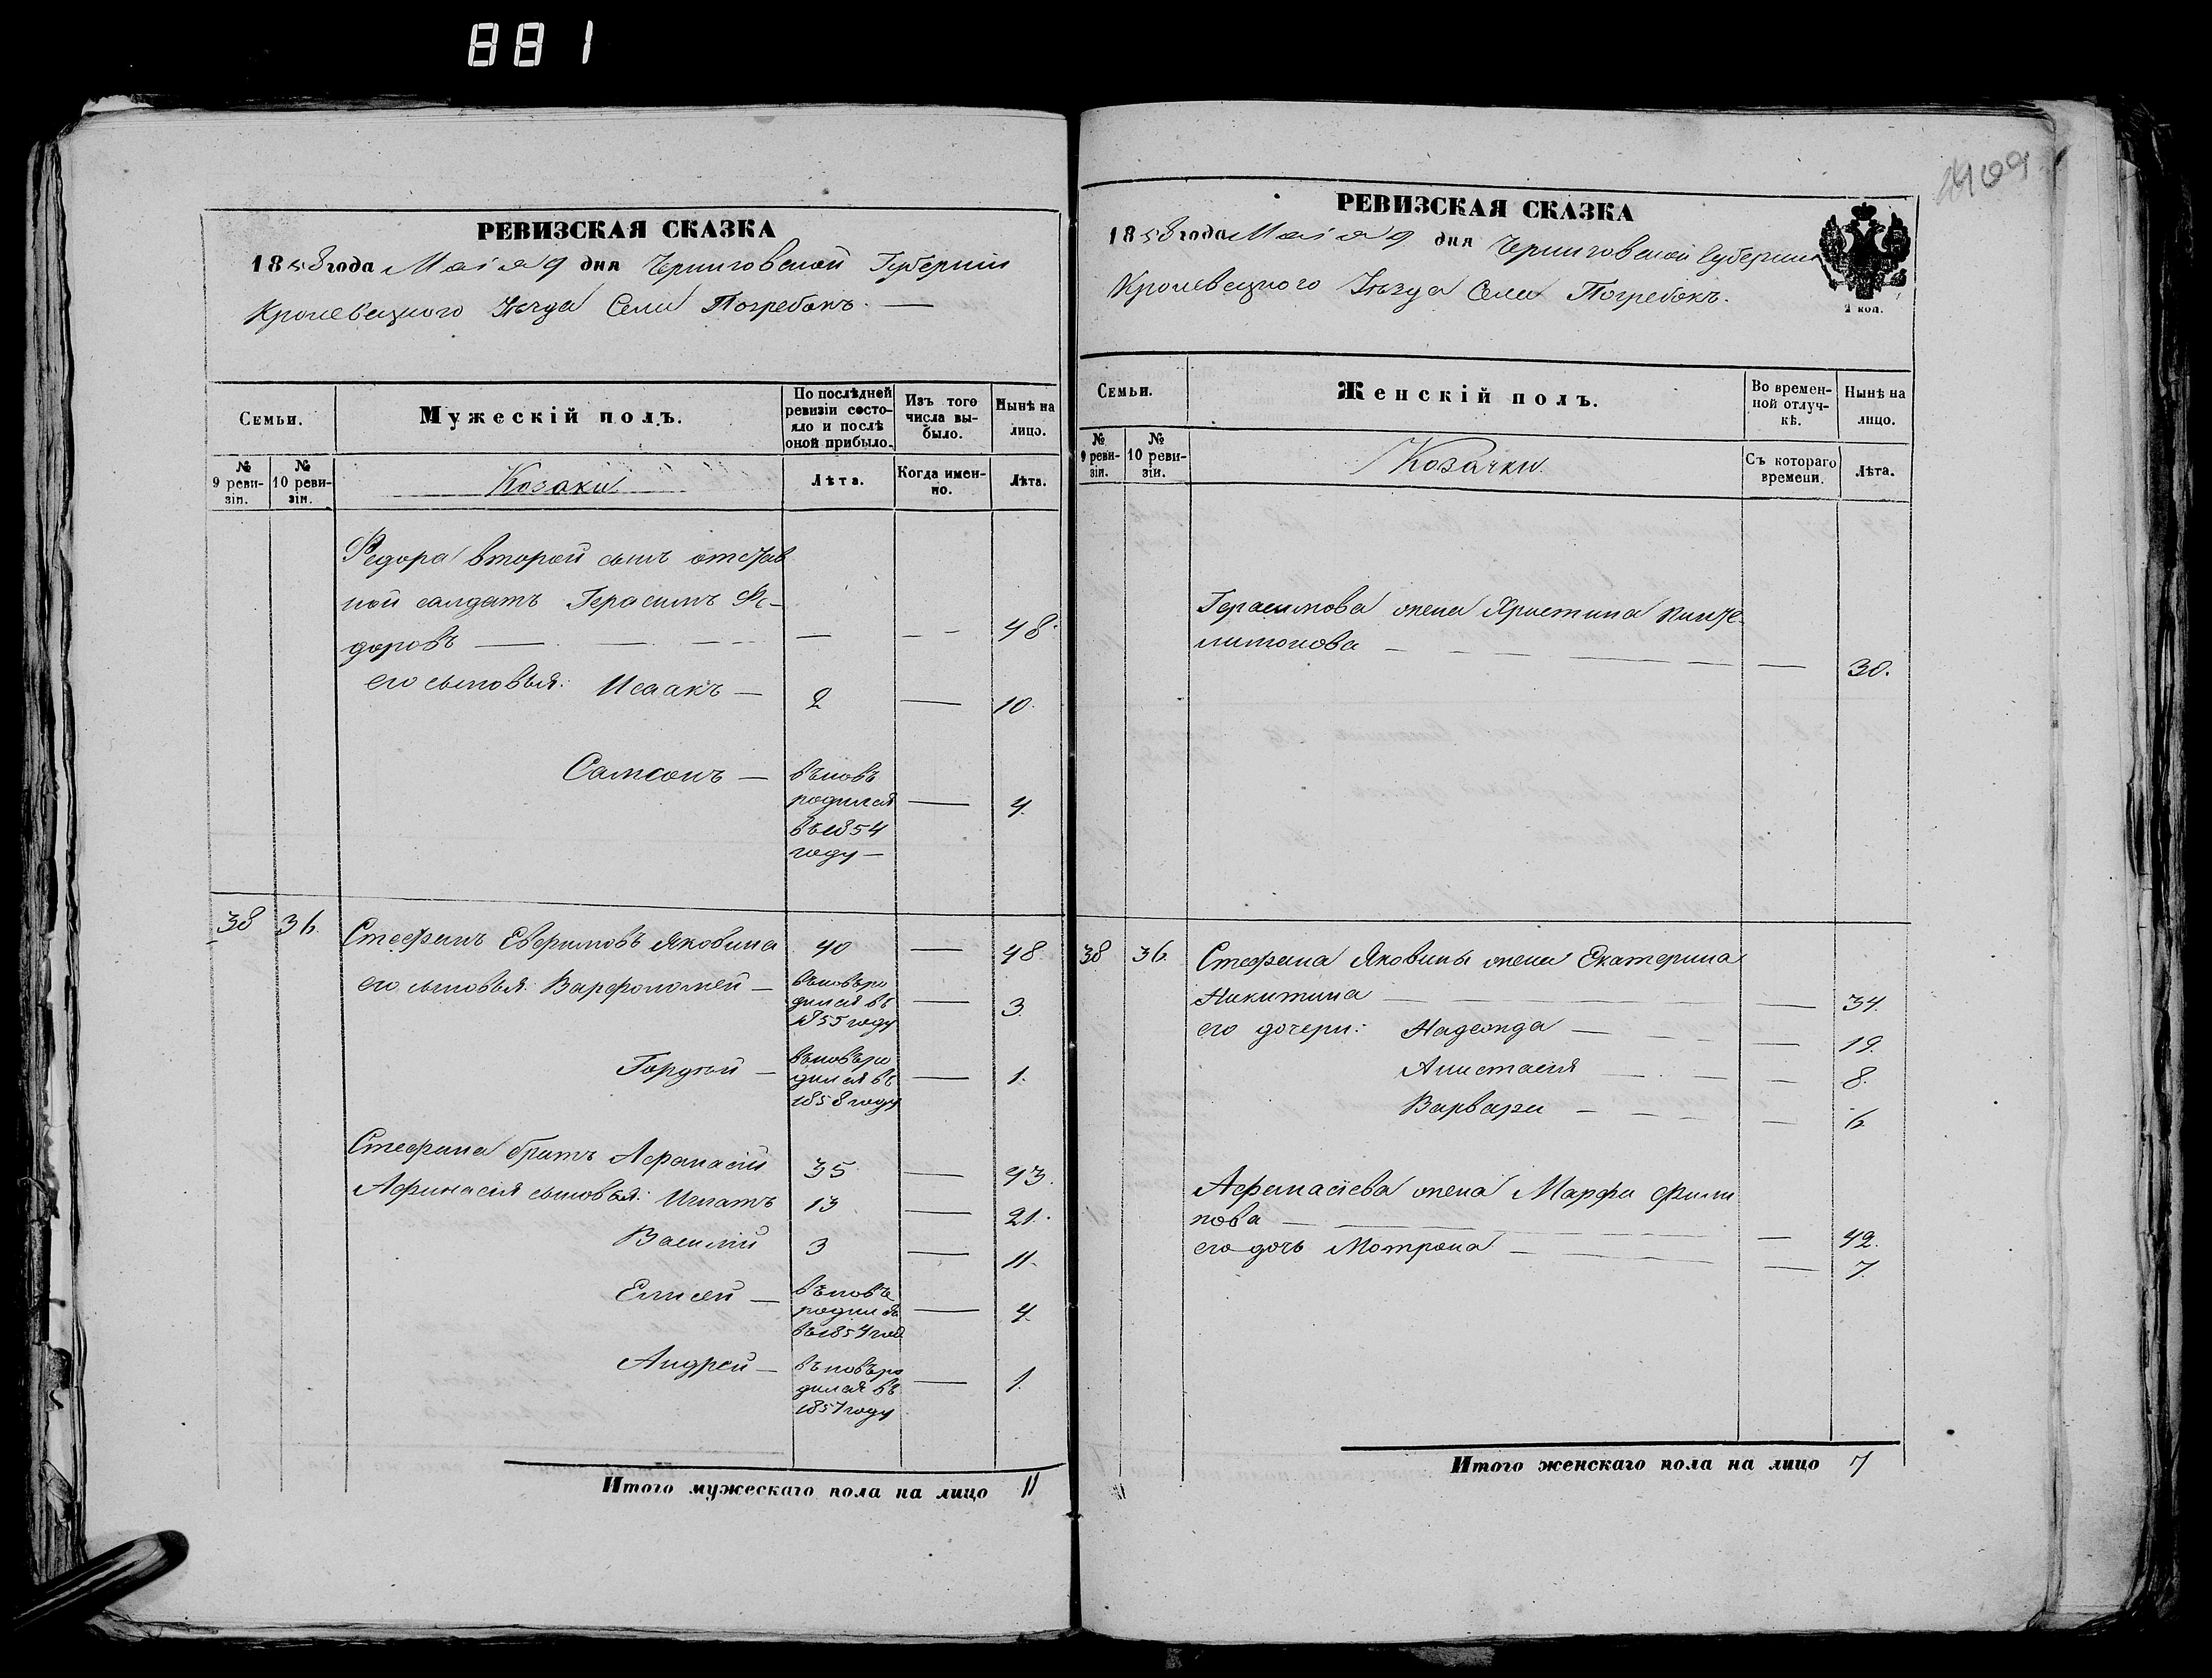 881
РЕВИЗСКАЯ СКАЗКА
1858 года Маія 9 дня Черниговской Губерніи
Кролевецкого Уѣзда Села Погребокъ. —
Семьи.
Мужескій полъ.
По послѣдней ревизіи состояло и послѣ оной прибыло.
Изъ того числа выбыло.
Нынѣ на лицо.
№ 9 ревизіи.
№ 10 ревизіи.
Козаки
Лѣта.
Когда именно.
Лѣта.
Федора второй сынъ отстав
ной салдатъ Герасимъ Фе-
доровъ — — — 48.
его сыновья: Исаакъ — 2 — 10.
Самсонъ — въновь родился въ 1854 году — — 4.
38 36. Стефанъ Евфимовъ Яковина 40 — 48.
его сыновья: Варфоломей — въновь родился въ 1855 году — 3.
Гордѣй — въновь родился въ 1858 году — 1.
Стефана братъ Афанасій 35 — 43.
Афанасія сыновья: Игнатъ 13 — 21.
Василій 3 — 11.
Елисей — въновь родился въ 1854 год — 4.
Андрей — въновь родился въ 1857 году — 1.
Итого мужескаго пола на лицо 11
1409
РЕВИЗСКАЯ СКАЗКА
1858 года Маія 9 дня Черниговской Губерніи
Кролевецкого Уѣзда Села Погребокъ.
2 коп.
Семьи.
Женскій полъ.
Во временной отлучкѣ.
Нынѣ на лицо.
№ 9 ревизіи.
№ 10 ревизіи.
Козачки.
Съ котораго времени.
Лѣта.
Герасимова жена Христина Панте-
лимонова — — 30.
38 36. Стефана Яковины жена Екатерина
Никитина — — 34.
его дочери: Надежда — — 19.
Анастасія — — 8.
Варвара — — 6.
Афанасіева жена Марфа Фили
пова — — 42.
его дочь Мотрона — — 7.
Итого женскаго пола на лицо 7